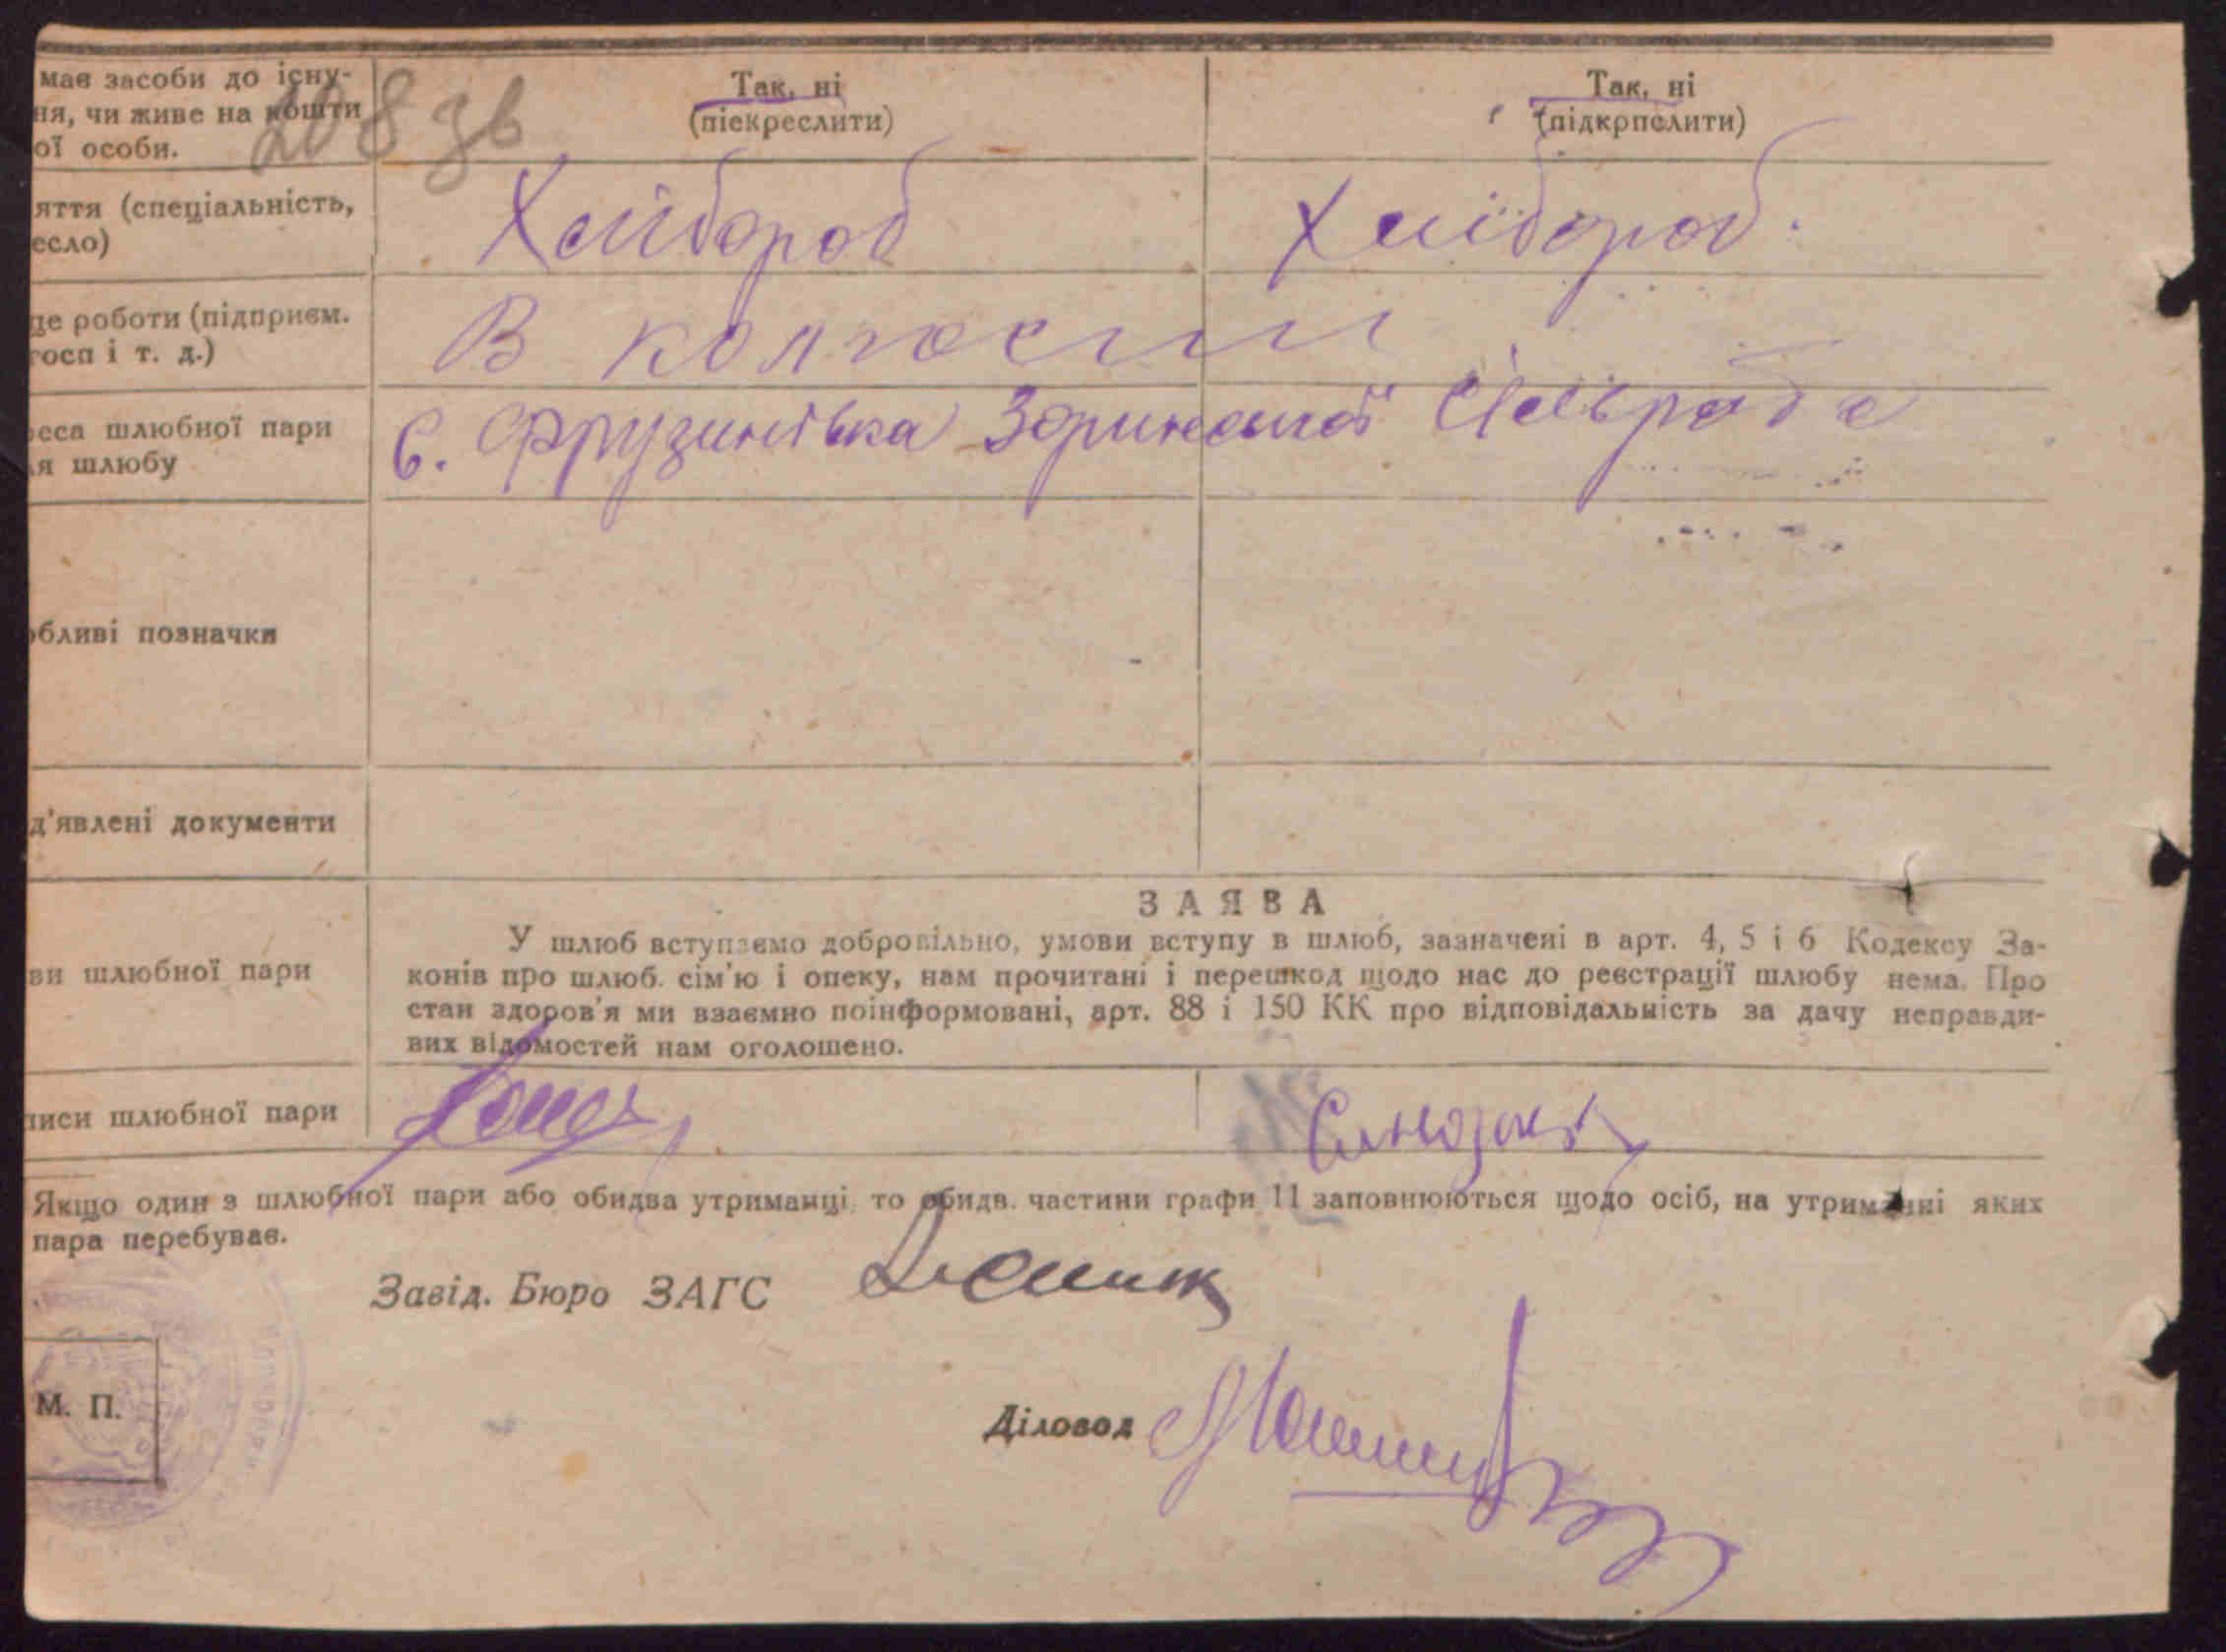 має засоби до існу-
ня, чи живе на кошти
ої особи.
208 зв
Так, ні
(піекреслити)
Так, ні
(підкрпслити)
яття (спеціальність,
есло)
Хлібороб
Хлібороб.
це роботи (підприєм.
госп і т. д.)
В колгоспі
еса шлюбної пари
я шлюбу
с. Фрузинівка Зоринської Сільрада
обливі позначки
д'явлені документи
ЗАЯВА
ви шлюбної пари
У шлюб вступаємо добровільно, умови вступу в шлюб, зазначені в арт. 4, 5 і 6 Кодексу За-
конів про шлюб. сім'ю і опеку, нам прочитані і перешкод щодо нас до реєстрації шлюбу нема. Про
стан здоров'я ми взаємно поінформовані, арт. 88 і 150 КК про відповідальність за дачу неправди-
вих відомостей нам оголошено.
писи шлюбної пари
Якщо один з шлюбної пари або обидва утриманці, то обидв. частини графи 11 заповнюються щодо осіб, на утриманні яких
пара перебуває.
Завід. Бюро ЗАГС
М. П.
Діловод